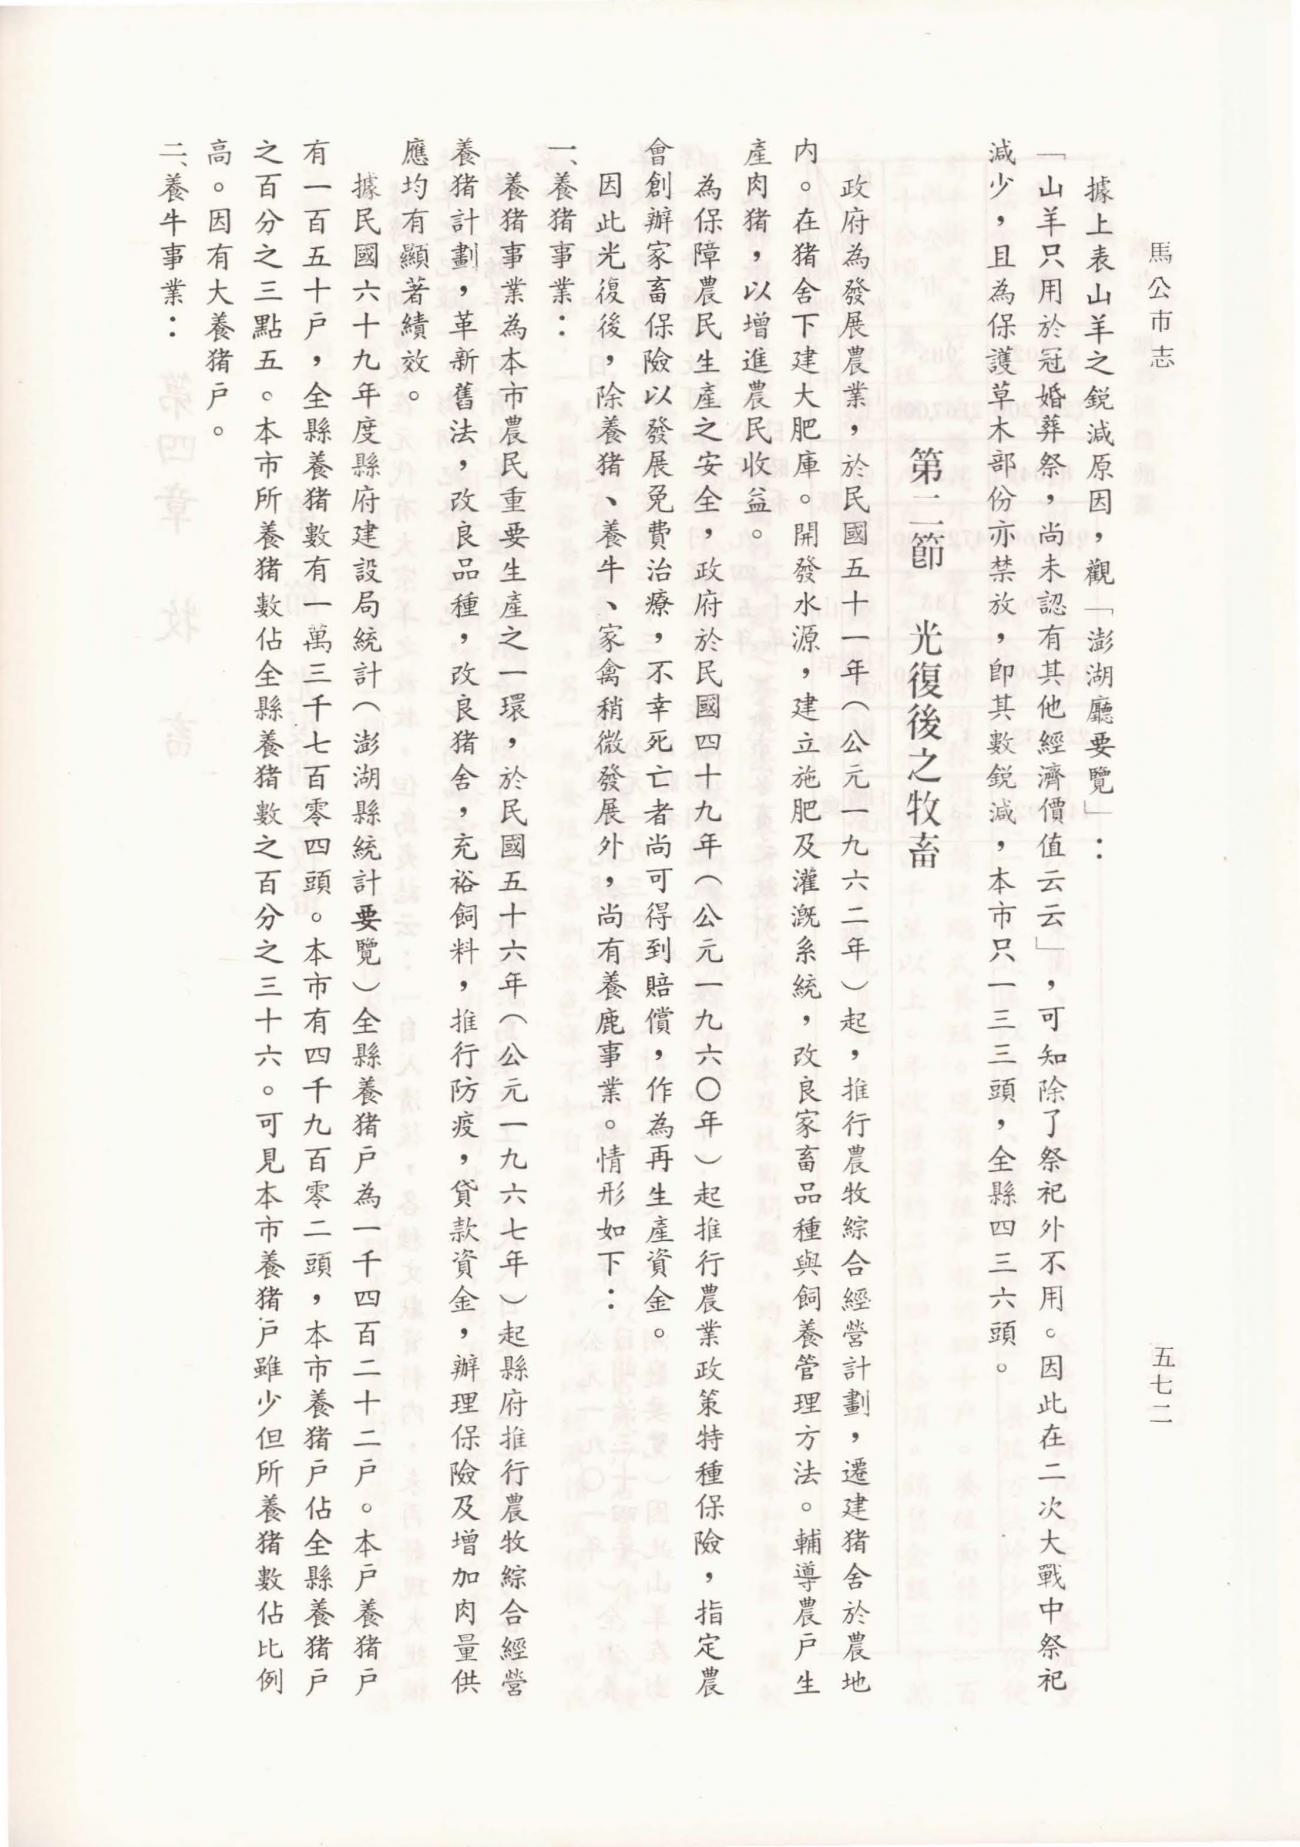 馬公市志
五七二
據上表山羊之銳減原因，觀「澎湖廳要覽」：
「山羊只用於冠婚葬祭，尚未認有其他經濟價值云云」，可知除了祭祀外不用。因此在二次大戰中祭祀
減少，且為保護草木部份亦禁放，卽其數銳減，本市只一三三頭，全縣四三六頭。
第二節　光復後之牧畜
政府為發展農業，於民國五十一年（公元一九六二年）起，推行農牧綜合經營計劃，遷建猪舍於農地
內。在猪舍下建大肥庫。開發水源，建立施肥及灌溉系統，改良家畜品種與飼養管理方法。輔導農戶生
產肉猪，以增進農民收益。
為保障農民生產之安全，政府於民國四十九年（公元一九六〇年）起推行農業政策特種保險，指定農
會創辦家畜保險以發展免費治療，不幸死亡者尚可得到賠償，作為再生產資金。
因此光復後，除養猪、養牛、家禽稍微發展外，尚有養鹿事業。情形如下：
一、養猪事業：
養猪事業為本市農民重要生產之一環，於民國五十六年（公元一九六七年）起縣府推行農牧綜合經營
養猪計劃，革新舊法，改良品種，改良猪舍，充裕飼料，推行防疫，貸款資金，辦理保險及增加肉量供
應均有顯著績效。
據民國六十九年度縣府建設局統計（澎湖縣統計要覽）全縣養猪戶為一千四百二十二戶。本戶養猪戶
有一百五十戶，全縣養猪數有一萬三千七百零四頭。本市有四千九百零二頭，本市養猪戶佔全縣養猪戶
之百分之三點五。本市所養猪數佔全縣養猪數之百分之三十六。可見本市養猪戶雖少但所養猪數佔比例
高。因有大養猪戶。
二、養牛事業：